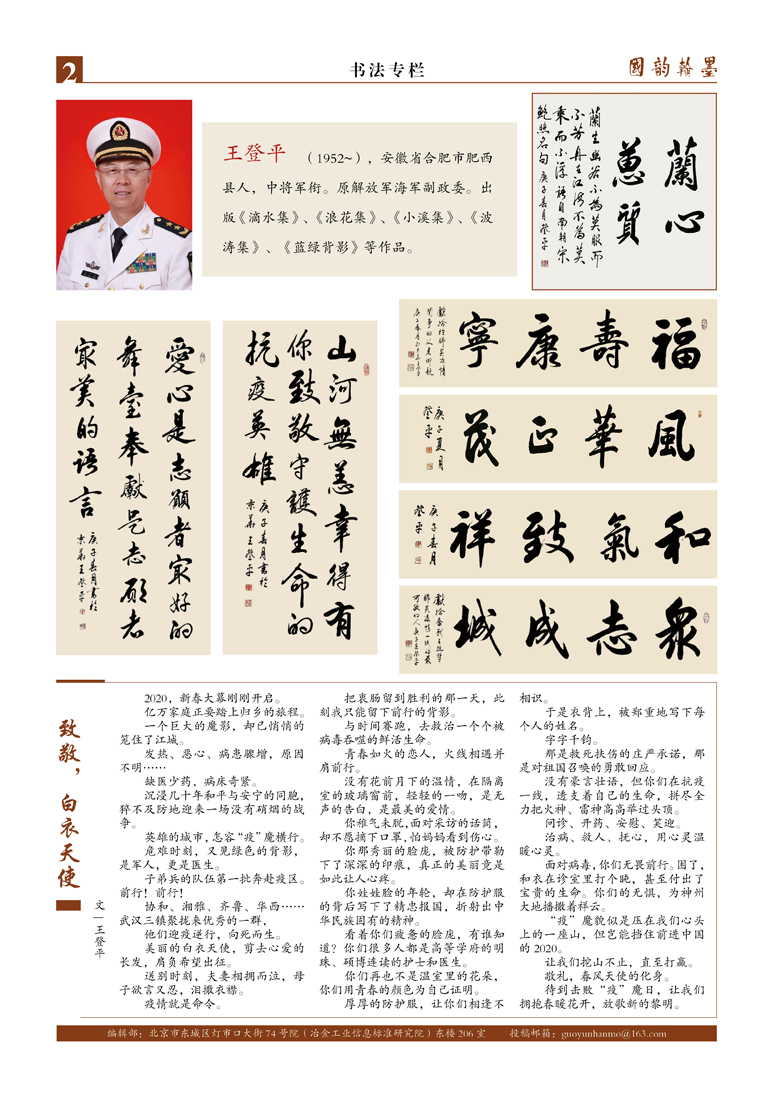 2
书法专栏
國韵翰墨
王登平 （1952~），安徽省合肥市肥西
县人，中将军衔。原解放军海军副政委。出
版《滴水集》、《浪花集》、《小溪集》、《波
涛集》、《蓝绿背影》等作品。
蘭心
蕙質
蘭生幽谷不為莫服而
不芳舟在江海不為莫
乘而不浮 語自南朝宋
鲍照名句 庚子春月 登平
愛心是志願者最好的
舞臺奉獻是志願者
最美的語言
庚子春月書於
京華 王登平
山河無恙幸得有
你致敬守護生命的
抗疫英雄
庚子春月書於
京華 王登平
福壽康寧
風華正茂
庚子夏月
登平
和氣致祥
庚子春月
登平
眾志成城
致敬，白衣天使
文—王登平
2020，新春大幕刚刚开启。
亿万家庭正要踏上归乡的旅程。
一个巨大的魔影，却已悄悄的
笼住了江城。
发热、恶心、病患骤增，原因
不明……
缺医少药，病床奇紧。
沉浸几十年和平与安宁的同胞，
猝不及防地迎来一场没有硝烟的战
争。
英雄的城市，怎容“疫”魔横行。
危难时刻，又见绿色的背影，
是军人，更是医生。
子弟兵的队伍第一批奔赴疫区。
前行！前行！
协和、湘雅、齐鲁、华西……
武汉三镇聚拢来优秀的一群，
他们迎疫逆行，向死而生。
美丽的白衣天使，剪去心爱的
长发，肩负希望出征。
送别时刻，夫妻相拥而泣，母
子欲言又忍，泪撒衣襟。
疫情就是命令。
把衷肠留到胜利的那一天，此
刻我只能留下前行的背影。
与时间赛跑，去救治一个个被
病毒吞噬的鲜活生命。
青春如火的恋人，火线相遇并
肩前行。
没有花前月下的温情，在隔离
室的玻璃窗前，轻轻的一吻，是无
声的告白，是最美的爱情。
你稚气未脱，面对采访的话筒，
却不愿摘下口罩，怕妈妈看到伤心。
你那秀丽的脸庞，被防护带勒
下了深深的印痕，真正的美丽竟是
如此让人心疼。
你娃娃脸的年轮，却在防护服
的背后写下了精忠报国，折射出中
华民族固有的精神。
看着你们疲惫的脸庞，有谁知
道？你们很多人都是高等学府的明
珠、硕博连读的护士和医生。
你们再也不是温室里的花朵，
你们用青春的颜色为自己证明。
厚厚的防护服，让你们相逢不
相识。
于是衣背上，被郑重地写下每
个人的姓名。
字字千钧。
那是救死扶伤的庄严承诺，那
是对祖国召唤的勇敢回应。
没有豪言壮语，但你们在抗疫
一线，透支着自己的生命，拼尽全
力把火神、雷神高高举过头顶。
问诊、开药、安慰、笑迎。
治病、救人、抚心，用心灵温
暖心灵。
面对病毒，你们无畏前行。困了，
和衣在诊室里打个盹，甚至付出了
宝贵的生命。你们的无惧，为神州
大地播撒着祥云。
“疫”魔貌似是压在我们心头
上的一座山，但岂能挡住前进中国
的 2020。
让我们挖山不止，直至打赢。
敬礼，春风天使的化身。
待到击败“疫”魔日，让我们
拥抱春暖花开，放歌新的黎明。
编辑部：北京市东城区灯市口大街 74 号院（冶金工业信息标准研究院）东楼 206 室 投稿邮箱：guoyunhanmo@163.com